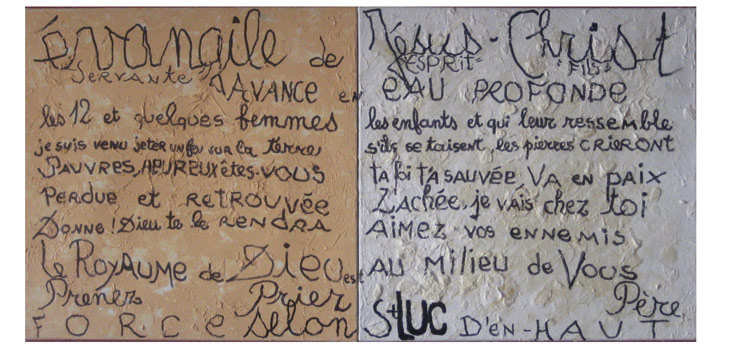 Évangile de Jésus-Christ
SERVANTE ESPRIT FILS
AVANCE en EAU PROFONDE
les 12 et quelques femmes les enfants et qui leur ressemble
je suis venu jeter un feu sur la terre s'ils se taisent, les pierres CRIERONT
PAUVRES, HEUREUX êtes-VOUS ta foi t'a sauvée, VA en paix
PERDUE et RETROUVÉE Zachée, je vais chez toi
Donne! Dieu te le RENDRA AIMEZ vos ennemis
le ROYAUME de Dieu est AU MILIEU de Vous
Prenez Prier Père
FORCE selon St LUC D'EN-HAUT